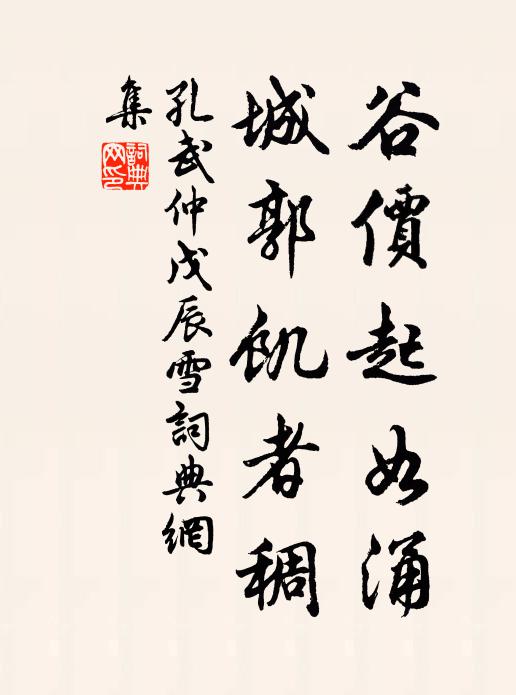 谷價起如涌
城郭飢者稠
孔武仲戊辰雪詞典網
集
詞典
网印